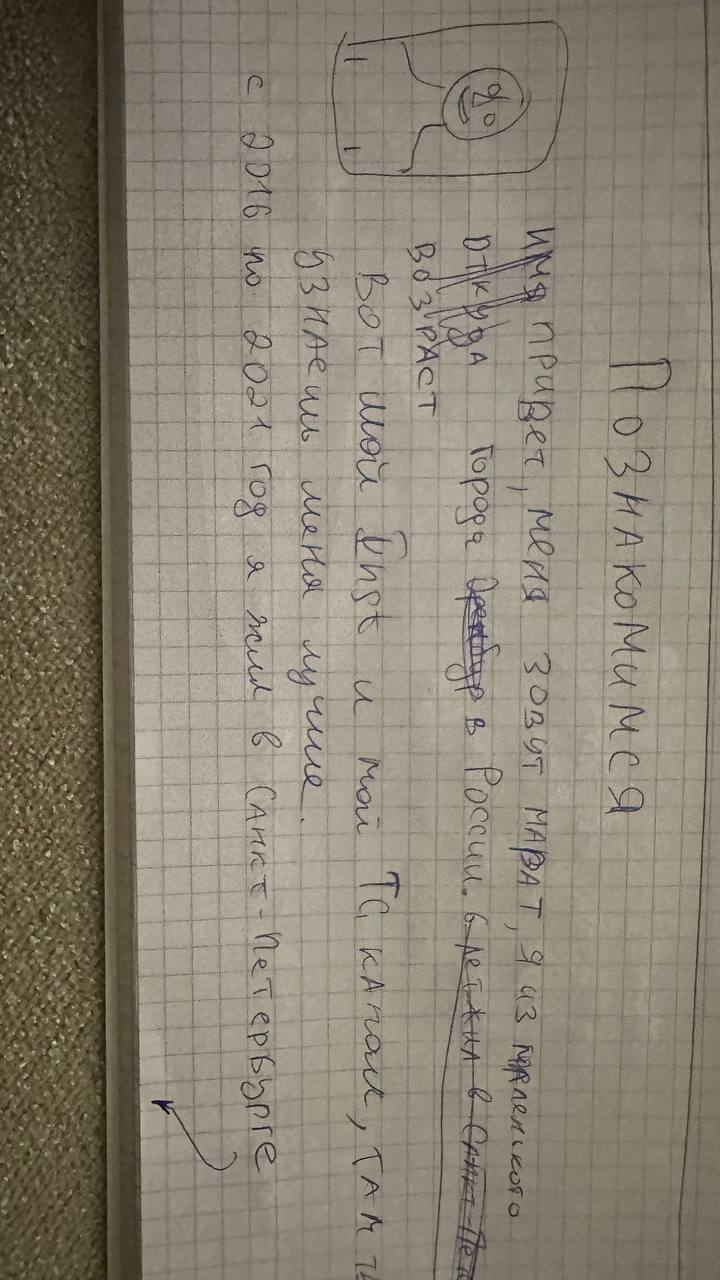 ПОЗНАКОМИМСЯ
имя привет, меня зовут МАРАТ, я из маленького
откуда города Оренбург в России. 6 лет жил в Санкт-Пет
ВОЗРАСТ
Вот мой Inst и мой TG канал, там ты
узнаешь меня лучше.
с 2016 по 2021 год я жил в Санкт-Петербурге